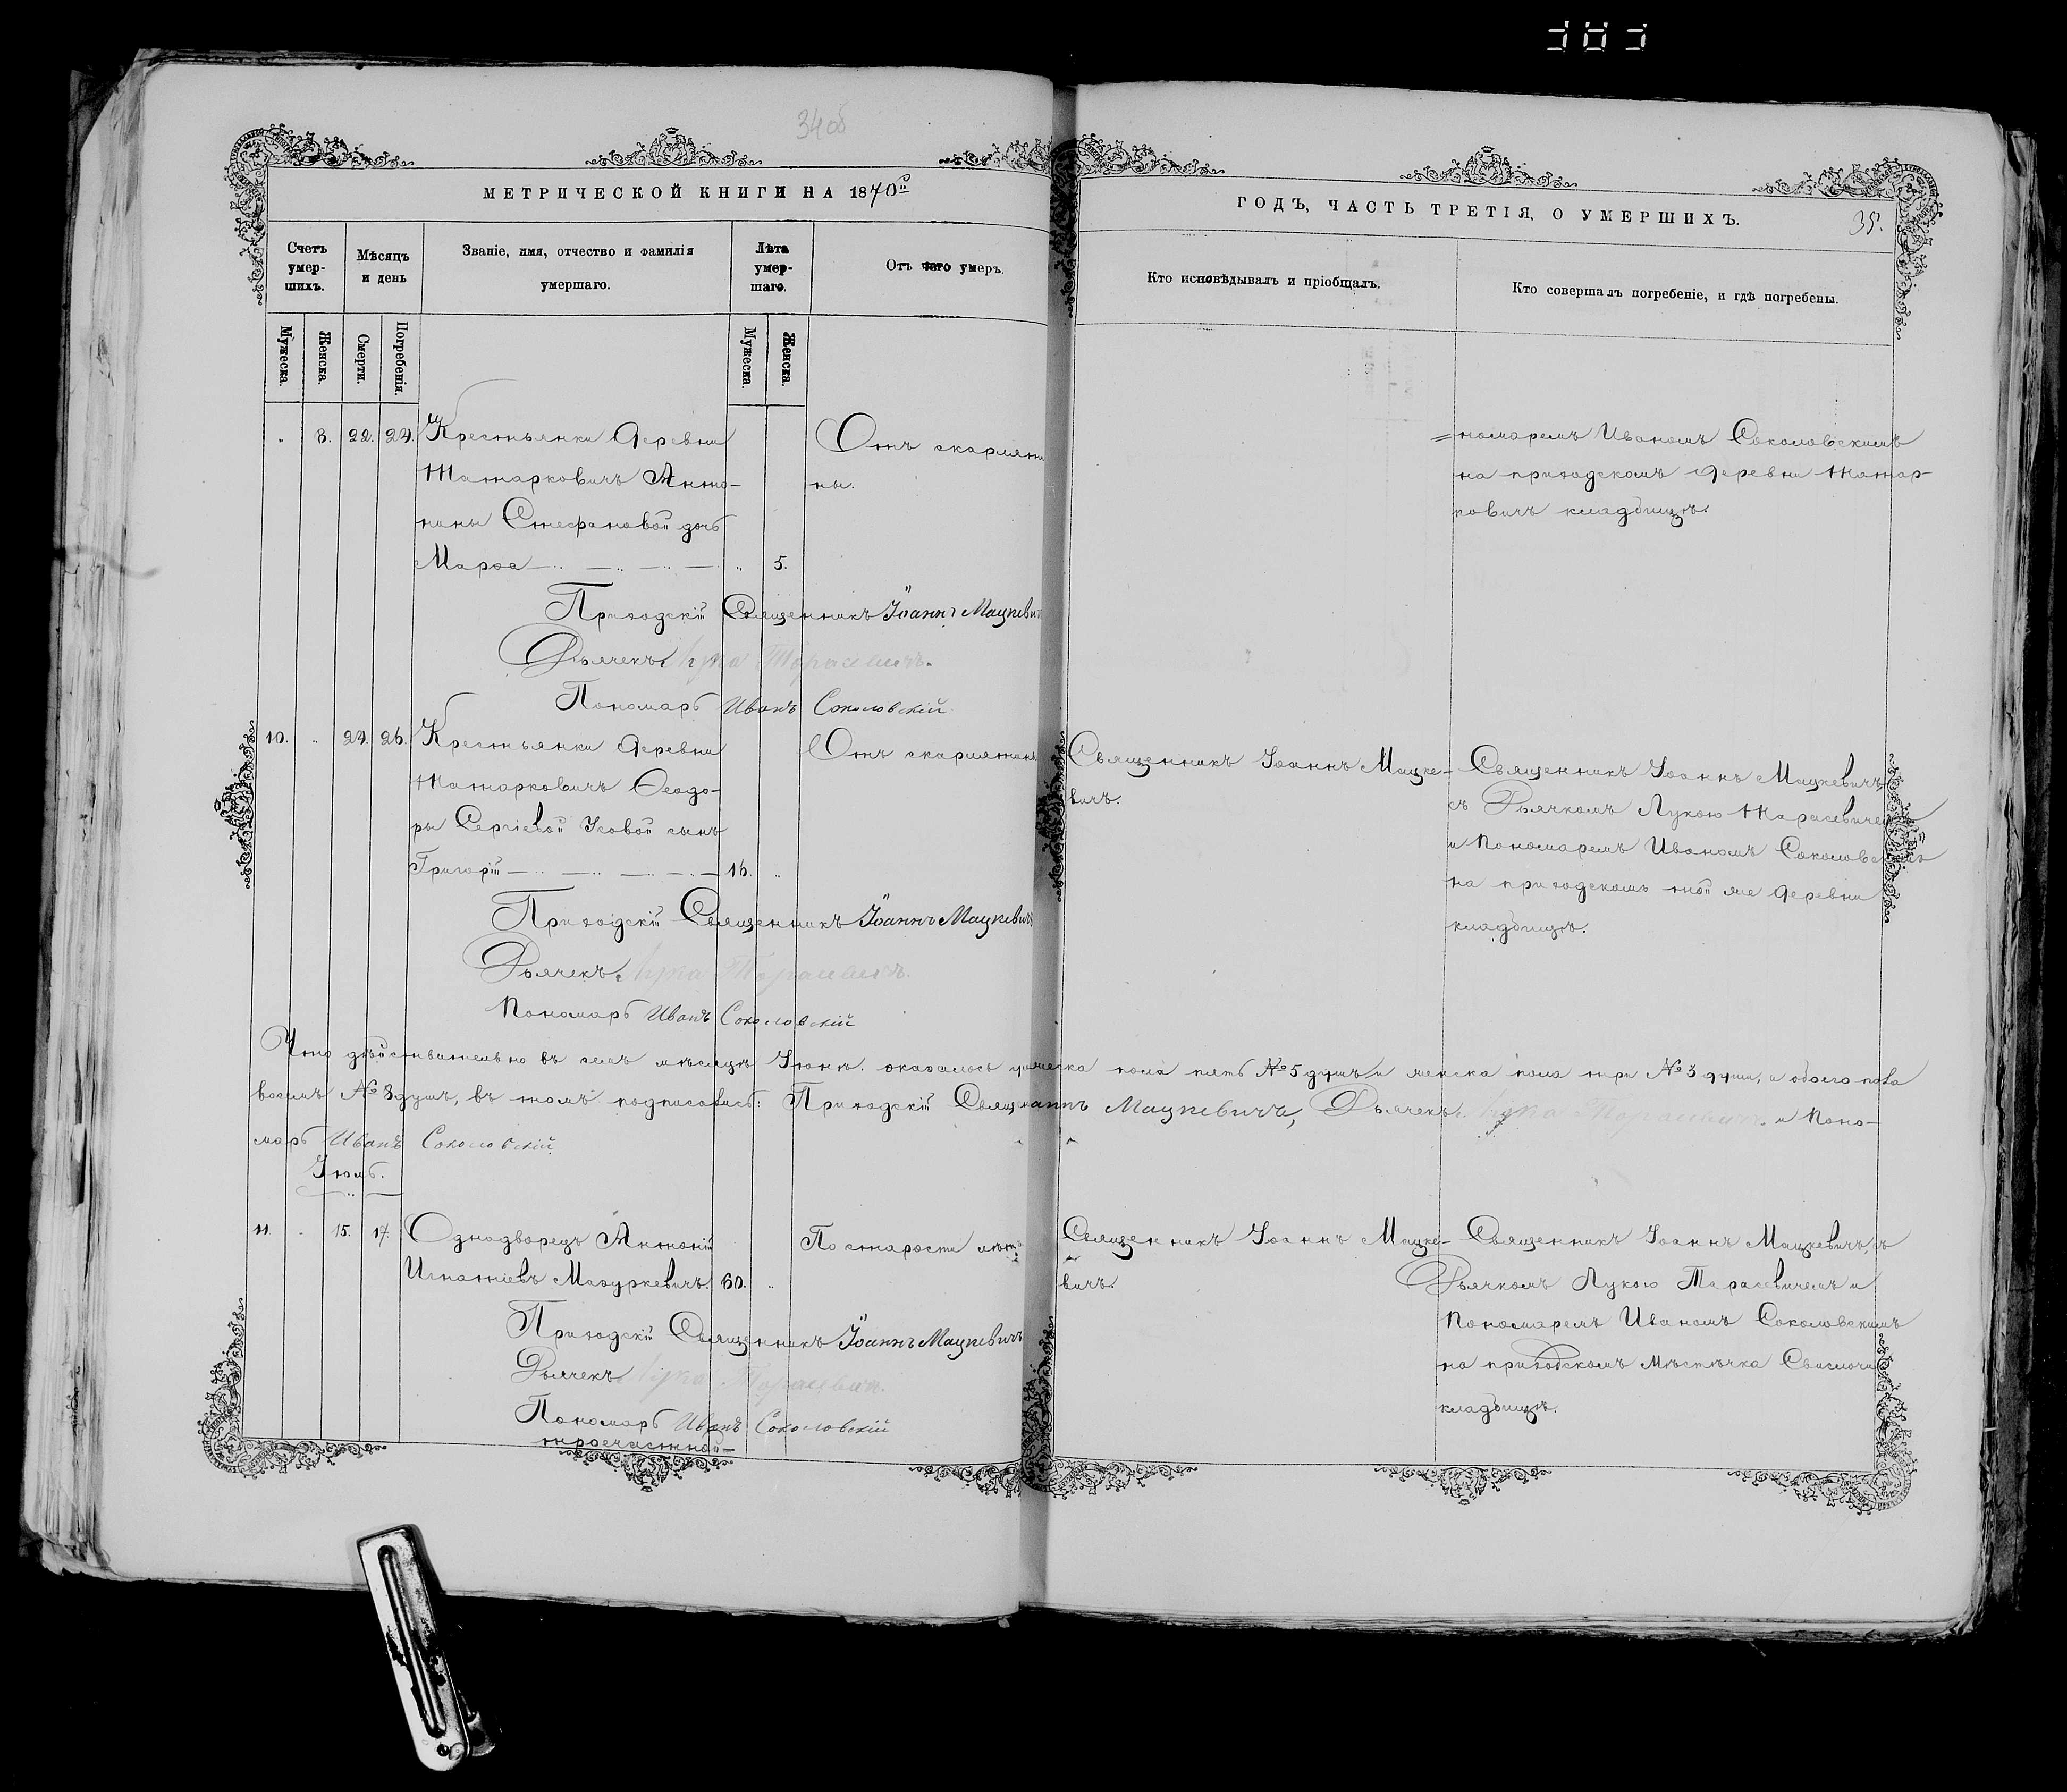 34 об
МЕТРИЧЕСКОЙ КНИГИ НА 1870й
ГОДЪ, ЧАСТЬ ТРЕТІЯ, О УМЕРШИХЪ.
35.
Счетъ умер-шихъ.
Мѣсяцъ и день
Званіе, имя, отчество и фамилія умершаго.
Лѣта умер-шаго.
Отъ чего умеръ.
Кто исповѣдывалъ и пріобщалъ.
Кто совершалъ погребеніе, и гдѣ погребены.
Мужеска.
Женска.
Смерти.
Погребенія.
Мужеска.
Женска.
" 8. 22. 24. Крестьянки деревни
Татарковичъ Анто-
нины Стефановой дочь
Марѳа " 5.
Отъ скарляти
ны.
=номаремъ Иваномъ Соколовскимъ
на приходскомъ деревни Татар-
ковичъ кладбищѣ.
Приходскій Священникъ Іоаннъ Мацкевичъ
Дьячекъ Лука Тарасевичъ.
Пономарь Иванъ Соколовскій
10. " 24. 26. Крестьянки деревни
Татарковичъ Ѳеодо-
ры Сергіевой Усовой сынъ
Григорій 16. "
Отъ скарлятины
Священникъ Іоаннъ Мацке-
вичъ.
Священникъ Іоаннъ Мацкевичъ
съ Дьячкомъ Лукою Тарасевичемъ
и Пономаремъ Иваномъ Соколовскимъ
на приходскомъ той же деревни
кладбищѣ.
Приходскій Священникъ Іоаннъ Мацкевичъ
Дьячекъ Лука Тарасевичъ.
Пономарь Иванъ Соколовскій
Что дѣйствительно въ семъ мѣсяцѣ Іюнѣ оказалось умершихъ мужеска пола пять №5 душъ и женска пола три №3 души, а обоего пола
восемь №8 душъ, въ томъ подписались: Приходскій Священникъ Іоаннъ Мацкевичъ, Дьячекъ Лука Тарасевичъ и Поно-
марь Иванъ Соколовскій
Іюль.
11 " 15. 17. Однодворецъ Антоній
Игнатіевъ Мазуркевичъ 60. "
По старости лѣтъ
Священникъ Іоаннъ Мацке-
вичъ.
Священникъ Іоаннъ Мацкевичъ, съ
Дьячкомъ Лукою Тарасевичемъ и
Пономаремъ Иваномъ Соколовскимъ
на приходскомъ мѣстечка Свислочи
кладбищѣ.
Приходскій Священникъ Іоаннъ Мацкевичъ
Дьячекъ Лука Тарасевичъ.
Пономарь Иванъ Соколовскій
троечастной